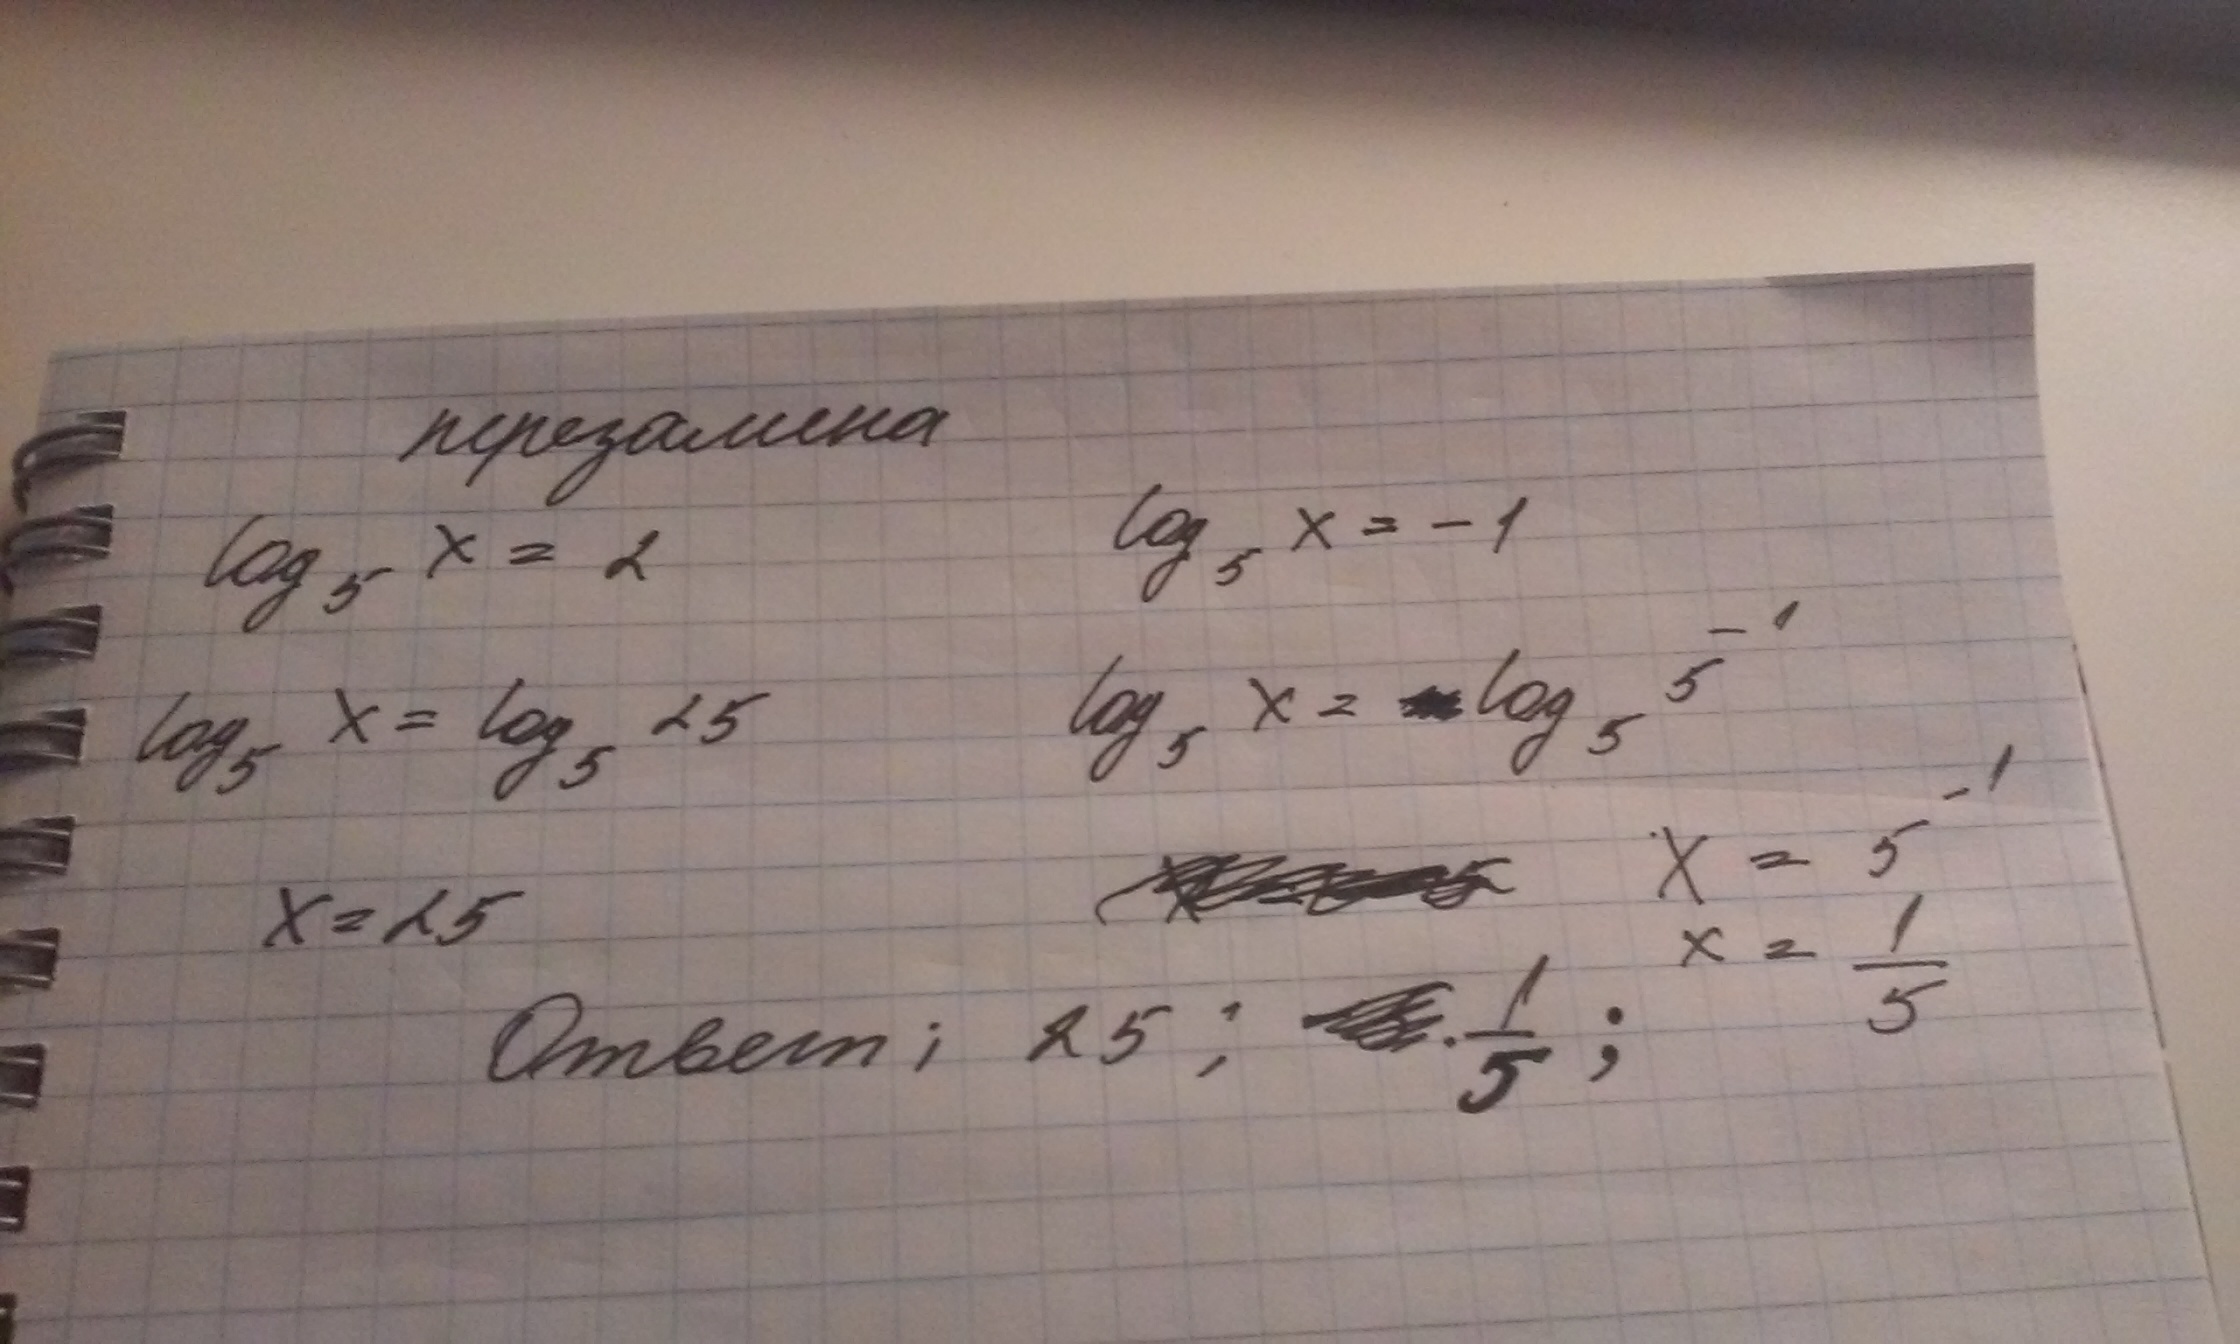 перезамена
log₅ x = 2 log₅ x = -1
log₅ x = log₅ 25 log₅ x = log₅ 5⁻¹
x = 25 x = 5⁻¹
x = 1/5
Ответ; 25; 1/5;